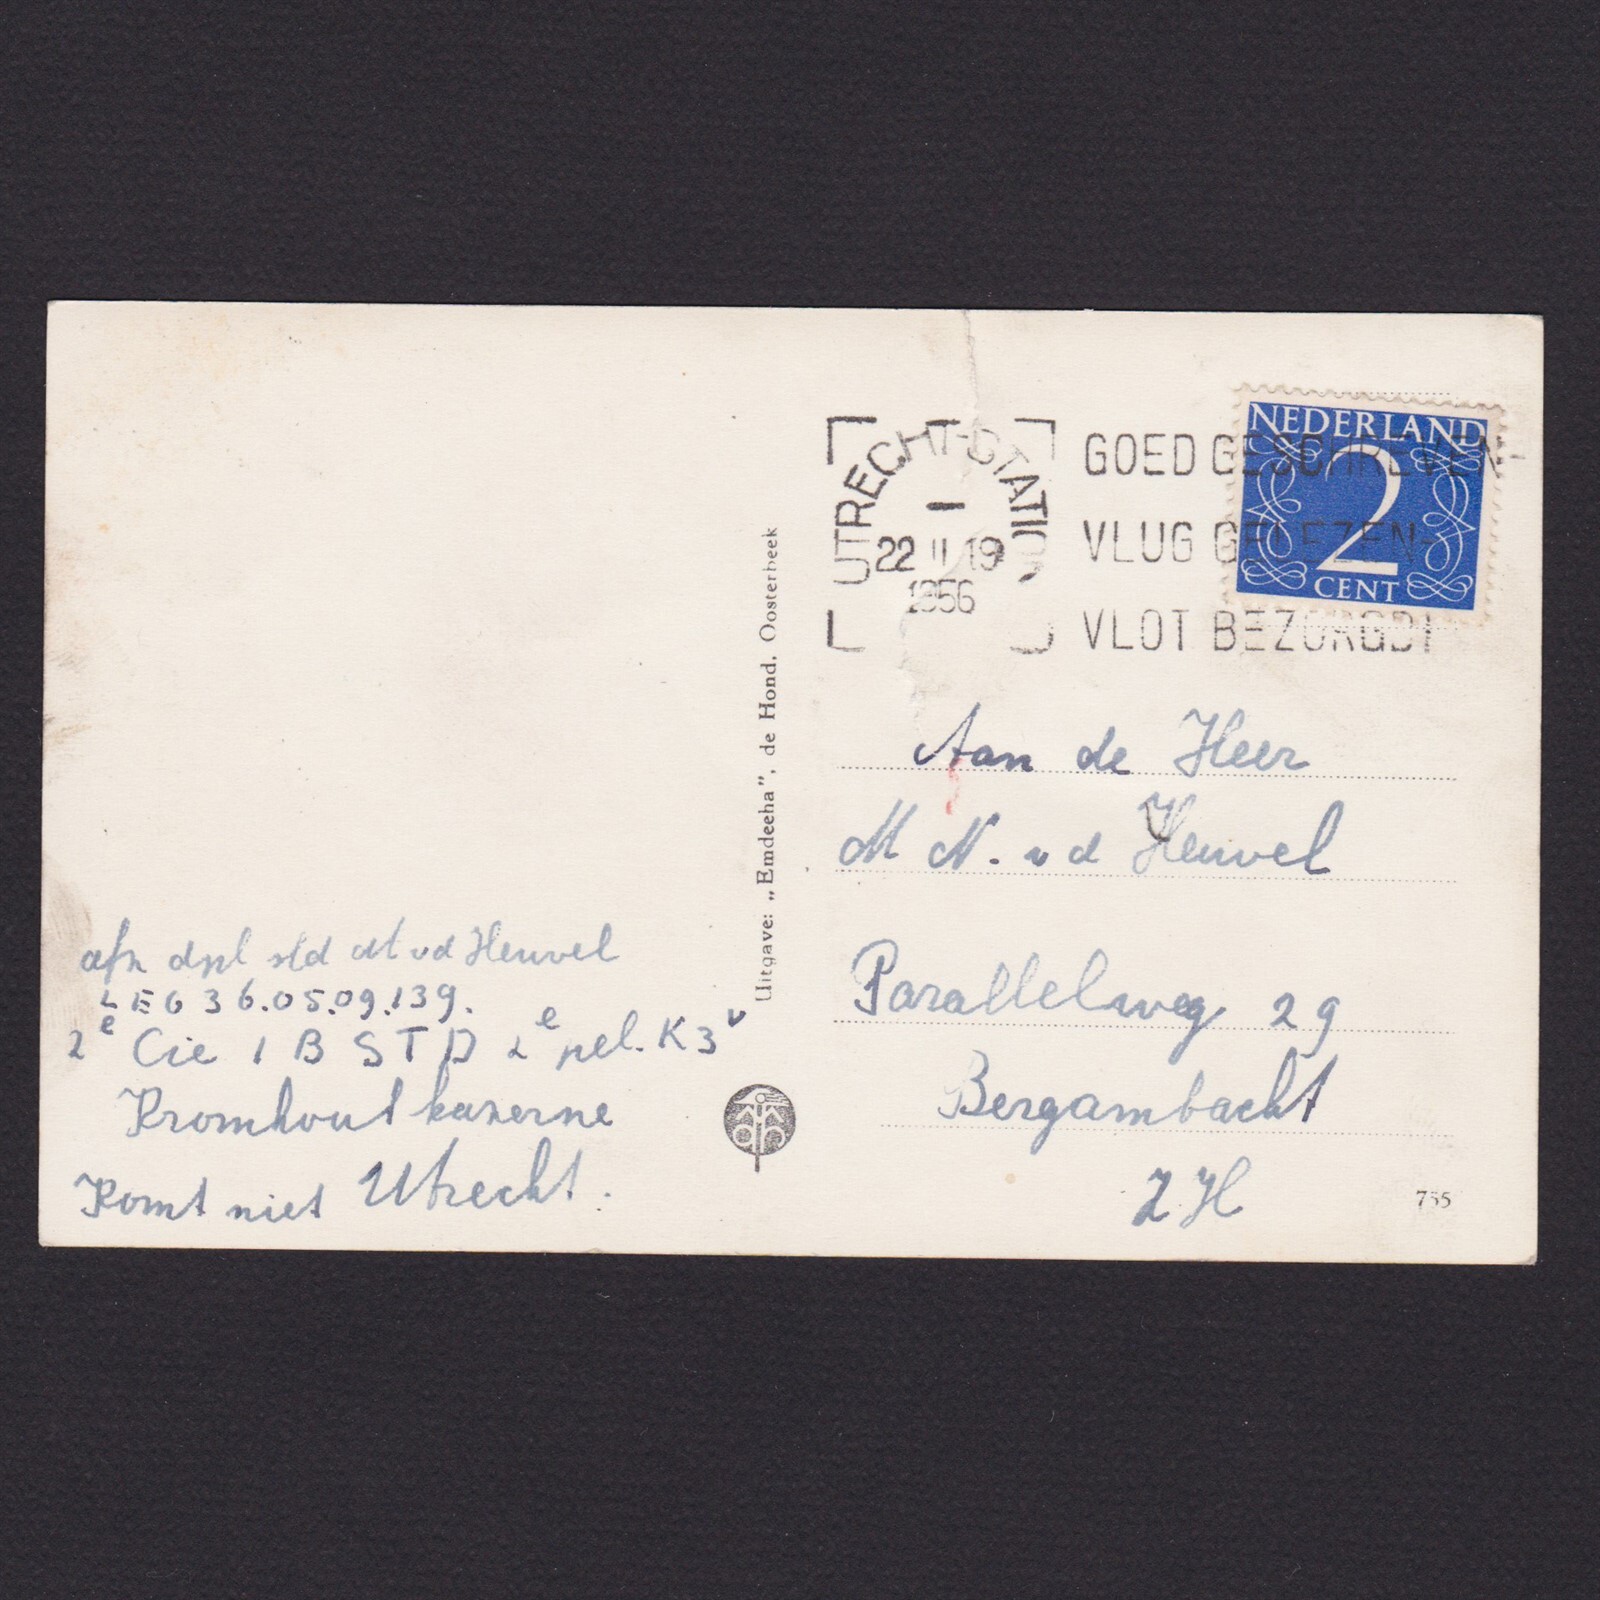 UTRECHT-STATION
22 II 19
1956
GOED GESCHREVEN-
VLUG GELEZEN-
VLOT BEZORGD!
NEDERLAND
2
CENT
Uitgave: „Emdeeha”, de Hond. Oosterbeek
Aan de Heer
M N. v d Heuvel
Parallelweg 29
Bergambacht
Z H
755
afz dpl sld M vd Heuvel
LEG 36.05.09.139.
2e Cie 1 B STD 2e pel. K3
Kromhout kazerne
Komt niet Utrecht.